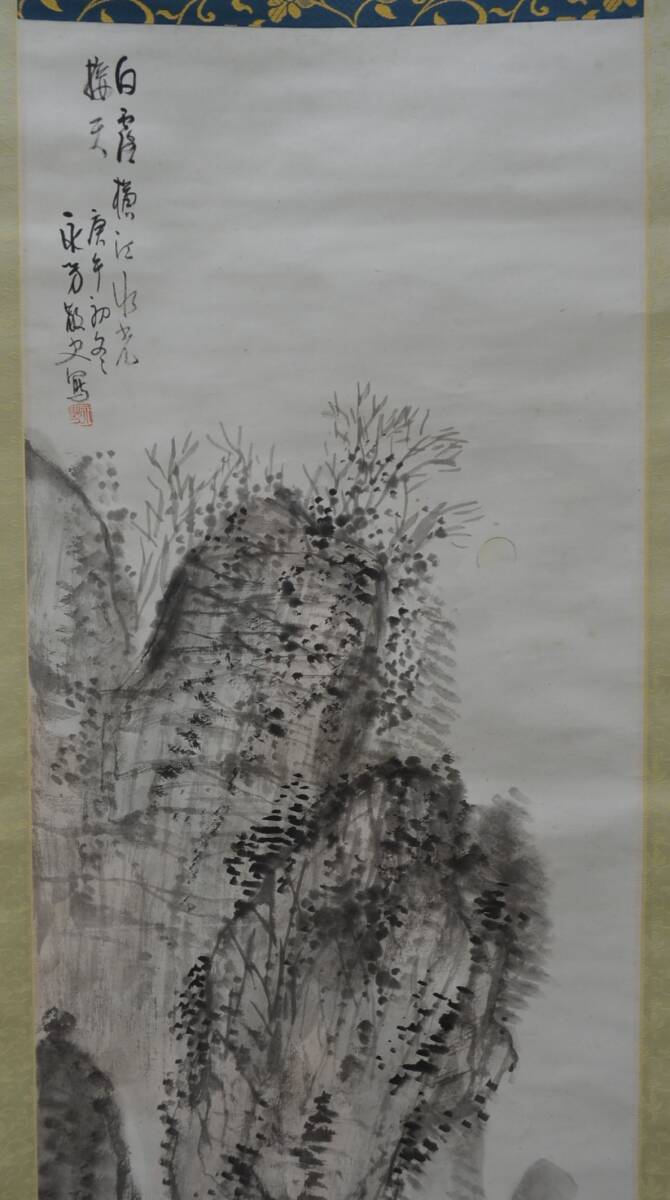 白露横江水光
接天
庚午初冬
永芳散史寫